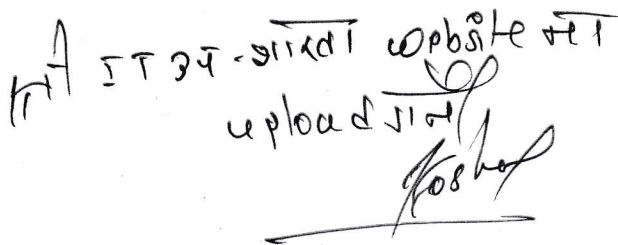 श्री IT उप-शाखा website मा
upload गर्न